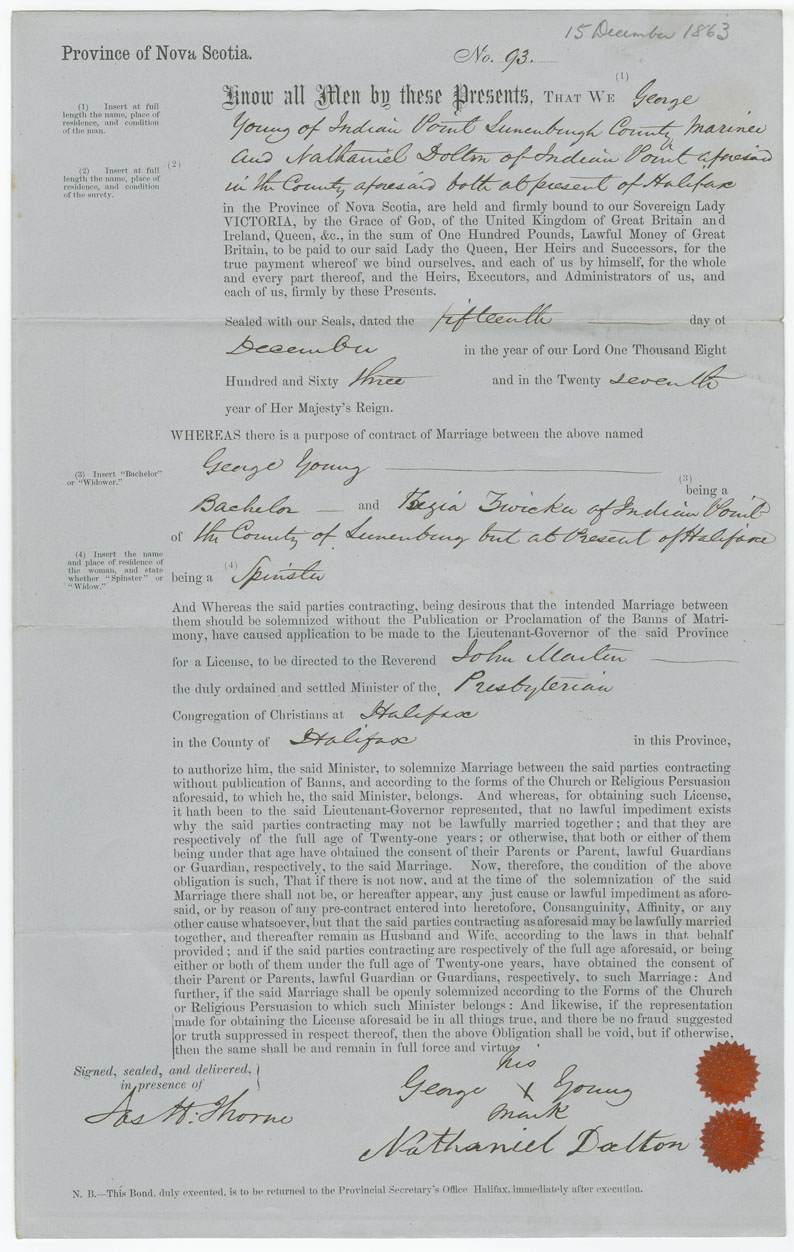 15 December 1863
Province of Nova Scotia.
No. 93.
(1)
Know all Men by these Presents, THAT WE George
(1) Insert at full
length the name, place of
residence, and condition
of the man.
Young of Indian Point Lunenburgh County Mariner
(2) Insert at full
length the name, place of
residence, and condition
of the surety.
(2)
and Nathaniel Dolton of Indian Point aforesaid
in the County aforesaid both at present of Halifax
in the Province of Nova Scotia, are held and firmly bound to our Sovereign Lady
VICTORIA, by the Grace of GOD, of the United Kingdom of Great Britain and
Ireland, Queen, &c., in the sum of One Hundred Pounds, Lawful Money of Great
Britain, to be paid to our said Lady the Queen, Her Heirs and Successors, for the
true payment whereof we bind ourselves, and each of us by himself, for the whole
and every part thereof, and the Heirs, Executors, and Administrators of us, and
each of us, firmly by these Presents.
Sealed with our Seals, dated the fifteenth day of
December in the year of our Lord One Thousand Eight
Hundred and Sixty three and in the Twenty seventh
year of Her Majesty's Reign.
WHEREAS there is a purpose of contract of Marriage between the above named
George Young
(3) Insert "Bachelor"
or "Widower."
(3)
being a
Bachelor and Zwicker of Indian Point
of the County of Lunenburg but at Present of Halifax
(4) Insert the name
and place of residence of
the woman, and state
whether "Spinster" or
"Widow."
(4)
being a Spinster
And Whereas the said parties contracting, being desirous that the intended Marriage between
them should be solemnized without the Publication or Proclamation of the Banns of Matri-
mony, have caused application to be made to the Lieutenant-Governor of the said Province
for a License, to be directed to the Reverend John Martin
the duly ordained and settled Minister of the Presbyterian
Congregation of Christians at Halifax
in the County of Halifax in this Province,
to authorize him, the said Minister, to solemnize Marriage between the said parties contracting
without publication of Banns, and according to the forms of the Church or Religious Persuasion
aforesaid, to which he, the said Minister, belongs. And whereas, for obtaining such License,
it hath been to the said Lieutenant-Governor represented, that no lawful impediment exists
why the said parties contracting may not be lawfully married together; and that they are
respectively of the full age of Twenty-one years; or otherwise, that both or either of them
being under that age have obtained the consent of their Parents or Parent, lawful Guardians
or Guardian, respectively, to the said Marriage. Now, therefore, the condition of the above
obligation is such, That if there is not now, and at the time of the solemnization of the said
Marriage there shall not be, or hereafter appear, any just cause or lawful impediment as afore-
said, or by reason of any pre-contract entered into heretofore, Consanguinity, Affinity, or any
other cause whatsoever, but that the said parties contracting as aforesaid may be lawfully married
together, and thereafter remain as Husband and Wife, according to the laws in that behalf
provided; and if the said parties contracting are respectively of the full age aforesaid, or being
either or both of them under the full age of Twenty-one years, have obtained the consent of
their Parent or Parents, lawful Guardian or Guardians, respectively, to such Marriage: And
further, if the said Marriage shall be openly solemnized according to the Forms of the Church
or Religious Persuasion to which such Minister belongs: And likewise, if the representation
made for obtaining the License aforesaid be in all things true, and there be no fraud suggested
or truth suppressed in respect thereof, then the above Obligation shall be void, but if otherwise,
then the same shall be and remain in full force and virtue.
Signed, sealed, and delivered,
in presence of
Jas H. Thorne
his
George X Young
mark
Nathaniel Dalton
N. B.—This Bond, duly executed, is to be returned to the Provincial Secretary's Office Halifax, immediately after execution.